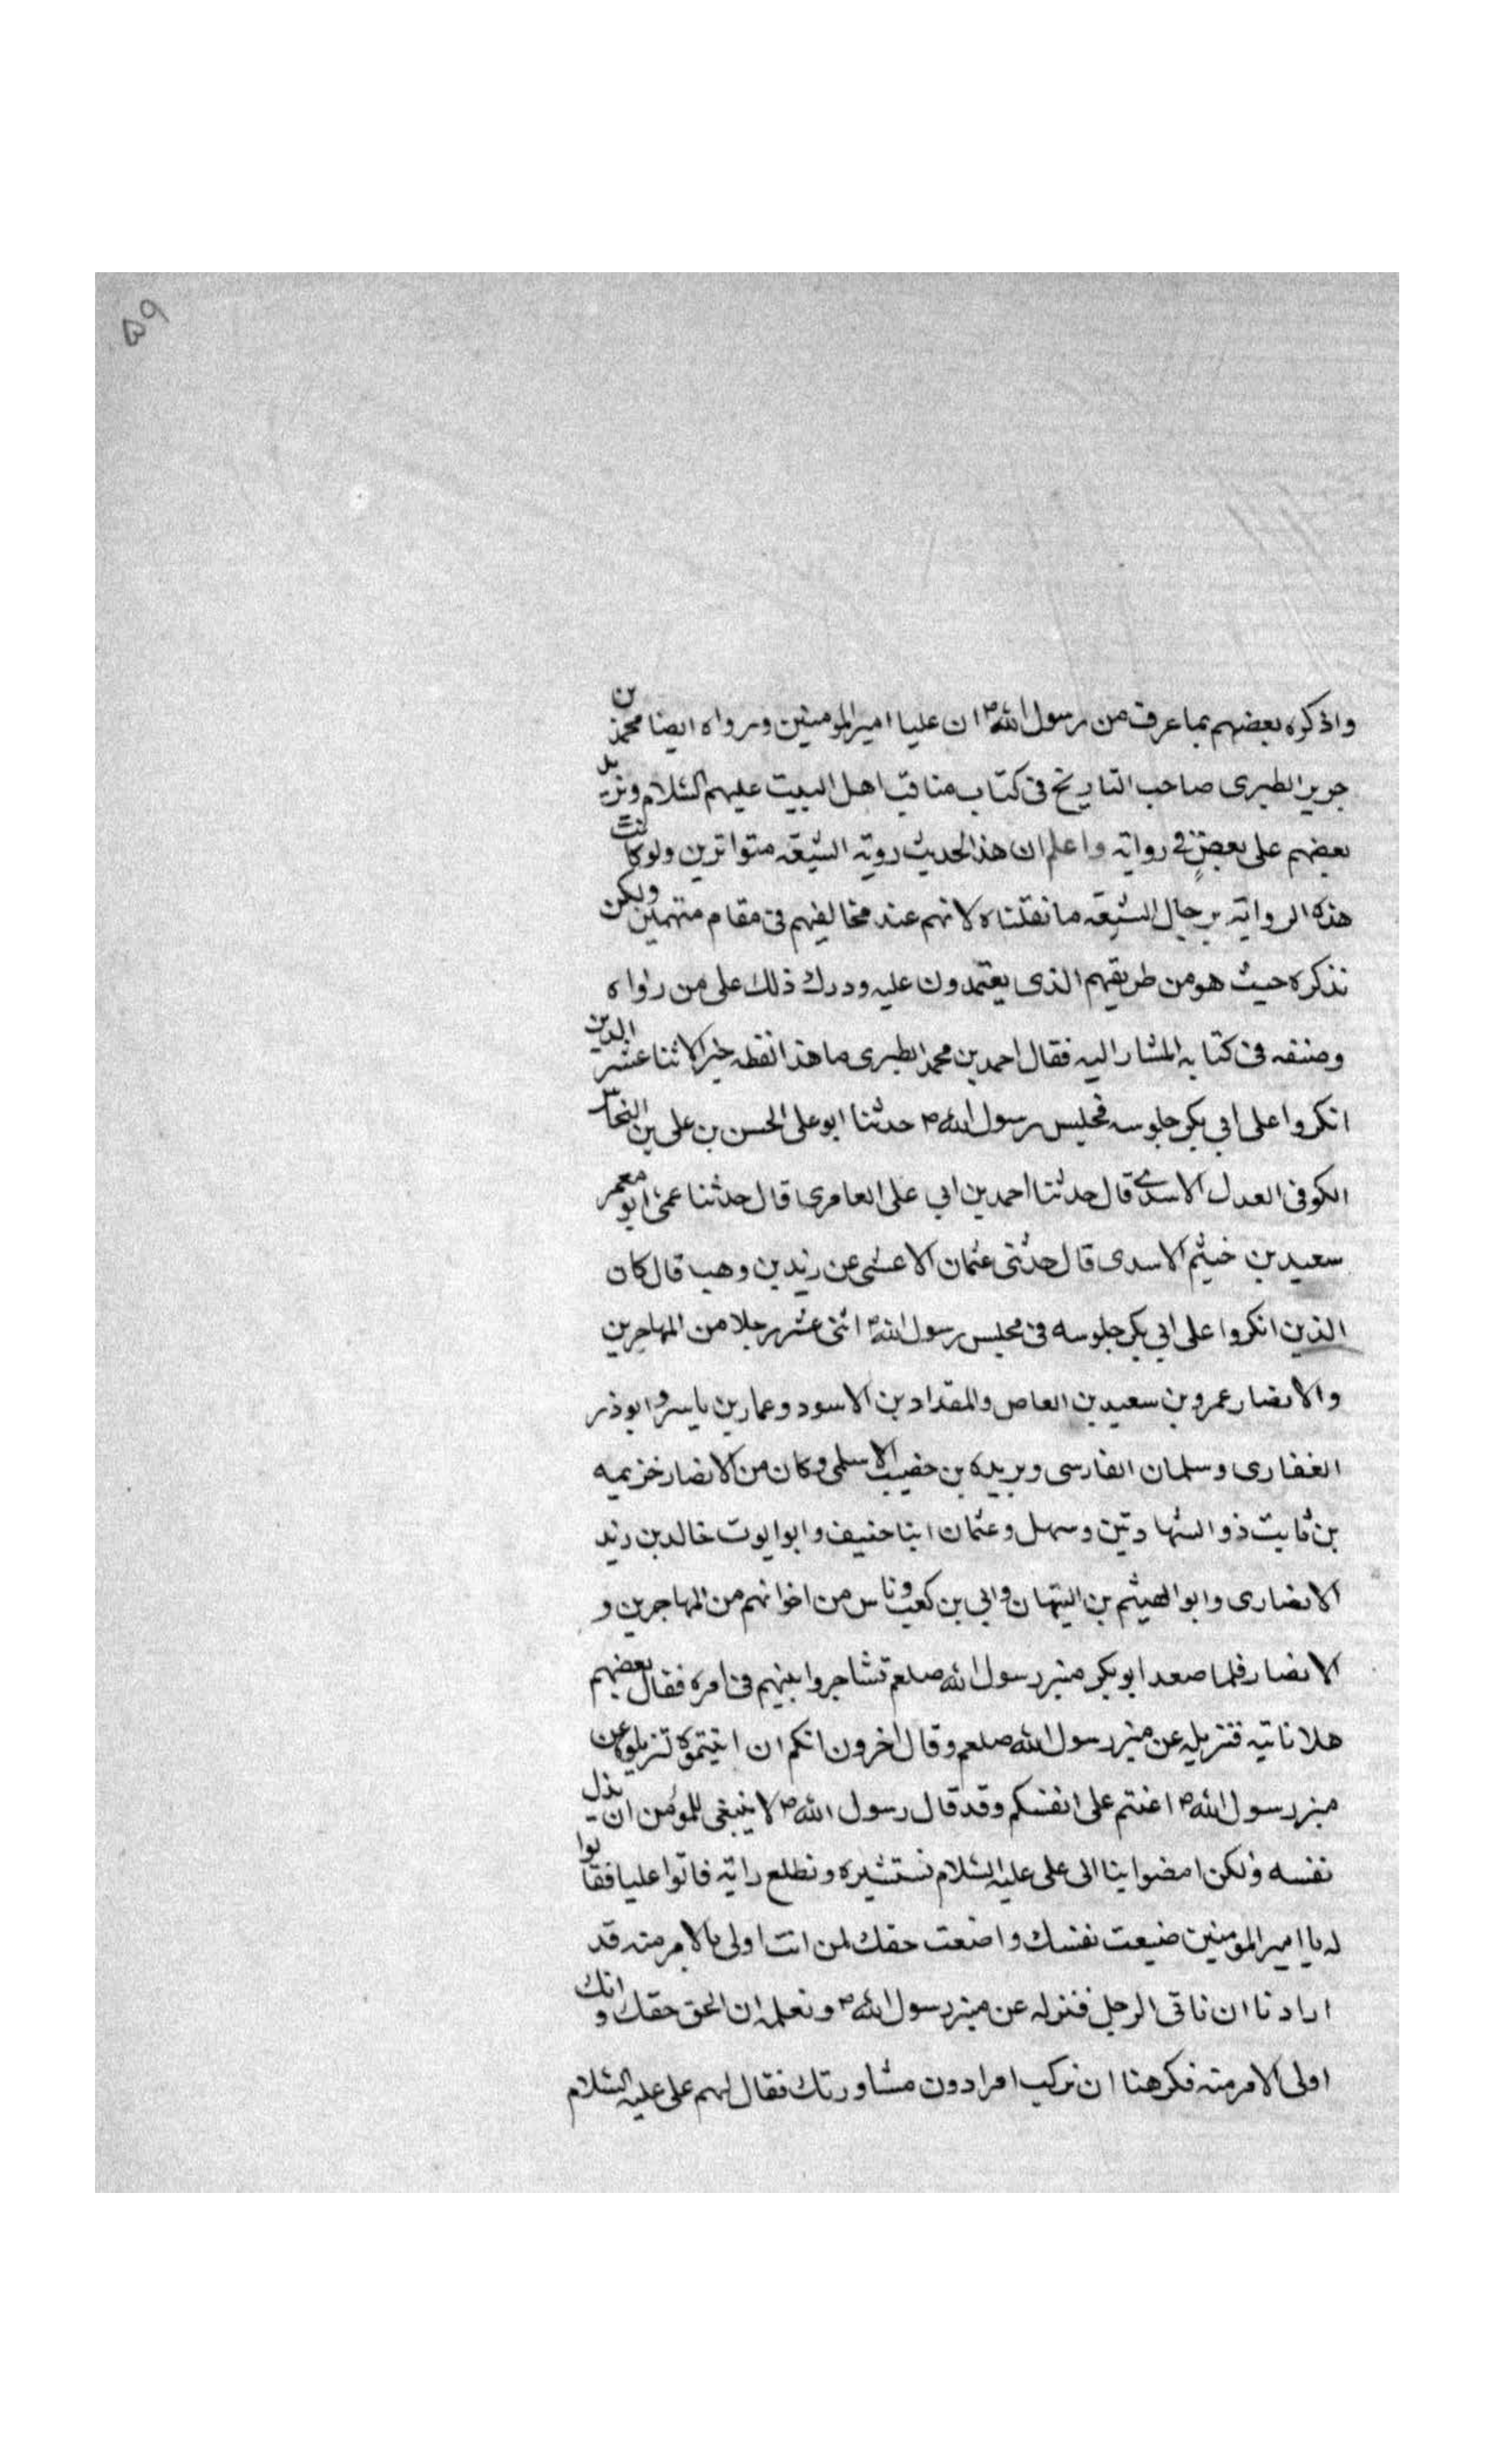 ۵۹
واذكره بعضهم بما عرف من رسول الله ص ان عليا امير المومنين ورواه ايضا محمد بن
جرير الطبرى صاحب التاريخ فى كتاب مناقب اهل البيت عليهم السلام ويزيد
بعضهم على بعض فى روايته واعلم ان هذا الحديث روته الشيعة متواترين ولو كانت
هذه الرواية برجال الشيعة ما نقلناه لانهم عند مخالفيهم فى مقام متهمين ولكن
نذكره حيث هو من طريقهم الذى يعتمدون عليه ودرك ذلك على من رواه
وصنفه فى كتابه المشار اليه فقال احمد بن محمد الطبرى ما هذا لفظه خبر الاثنا عشر الذين
انكروا على ابي بكر جلوسه فى مجلس رسول الله ص حدثنا ابو على الحسن بن على بن النحاس
الكوفى العدل الاسدى قال حدثنا احمد بن ابي على العامرى قال حدثنا عمى ابو معمر
سعيد بن خيثم الاسدى قال حدثنى عثمان الاعشى عن زيد بن وهب قال كان
الذين انكروا على ابي بكر جلوسه فى مجلس رسول الله ص اثنى عشر رجلا من المهاجرين
والانصار عمرو بن سعيد بن العاص والمقداد بن الاسود وعمار بن ياسر وابوذر
الغفارى وسلمان الفارسى وبريده بن حصيب الاسلمى وكان من الانصار خزيمه
بن ثابت ذو الشهادتين وسهل وعثمان ابنا حنيف وابو ايوب خالد بن زيد
الانصارى وابو الهيثم بن التيهان وابي بن كعب وناس من اخوانهم من المهاجرين و
الانصار فلما صعد ابو بكر منبر رسول الله صلعم تشاجروا بينهم فى امره فقال بعضهم
هلا ناتيه فننزيله عن منبر رسول الله صلعم وقال اخرون انكم ان اتيتموه لتنزيلوه عن
منبر رسول الله ص اعنتم على انفسكم وقد قال رسول الله ص لا ينبغى للمؤمن ان يذل
نفسه ولكن امضوا بنا الى على عليه السلام نستشيره ونطلع رايه فاتوا عليا فقالوا
له يا امير المومنين ضيعت نفسك واضعت حقك لمن انت اولى بالامر منه قد
اردنا ان ناتى الرجل فننزله عن منبر رسول الله ص ونعلمه ان الحق حقك وانك
اولى الامر منه فكرهنا ان نركب امرا دون مشاورتك فقال لهم على عليه السلام